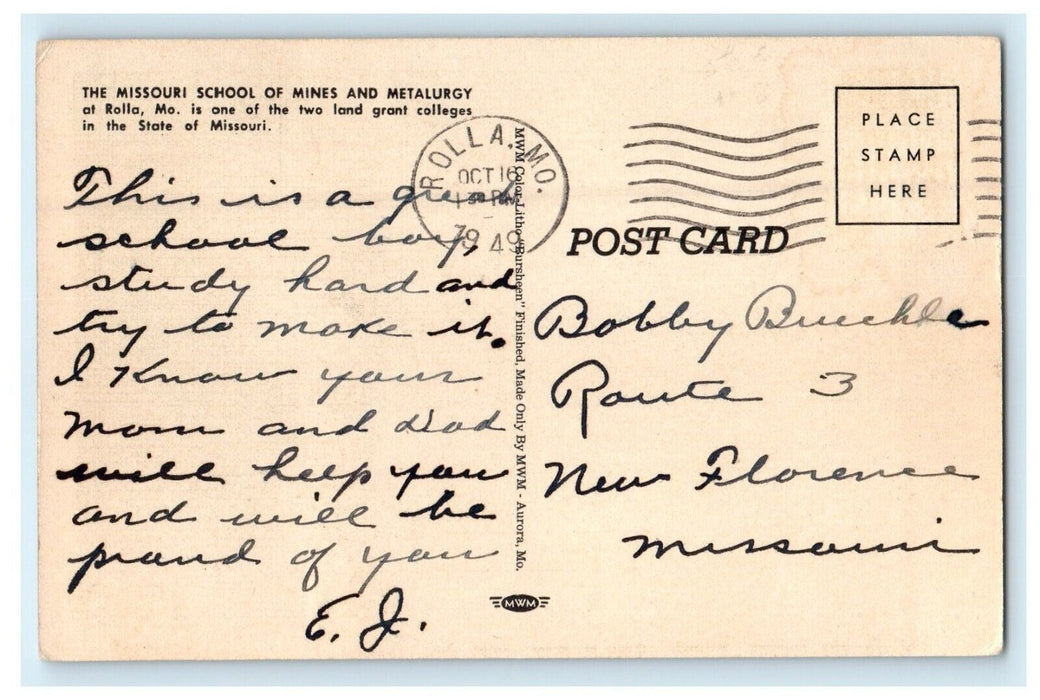 THE MISSOURI SCHOOL OF MINES AND METALURGY
at Rolla, Mo. is one of the two land grant colleges
in the State of Missouri.
This is a great
school boy,
study hard and
try to make it.
I know your
Mom and Dad
will help you
and will be
proud of you
E. J.
ROLLA, MO.
OCT 16
PM
1949
MWM Color-Litho "Bursheen" Finished, Made Only By MWM - Aurora, Mo.
MWM
PLACE
STAMP
HERE
POST CARD
Bobby Buechle
Route 3
New Florence
Missouri